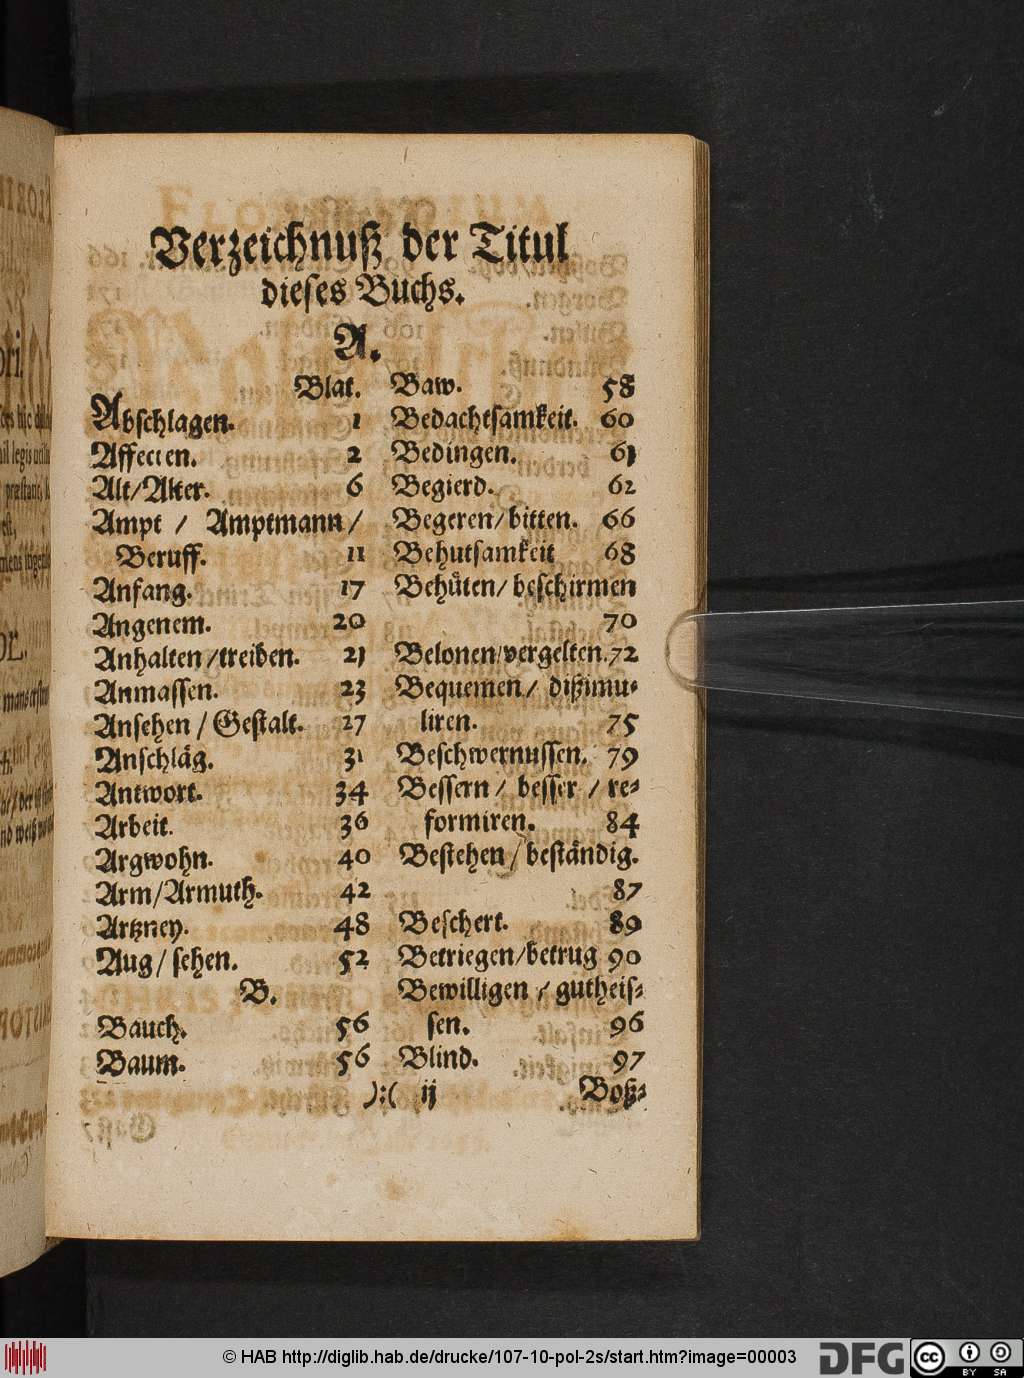 Verzeichnuß der Titul
dieses Buchs.
A.
Blat.
Abschlagen. 1
Affecten. 2
Alt/Alter. 6
Ampt / Amptmann /
Beruff. 11
Anfang. 17
Angenem. 20
Anhalten/treiben. 21
Anmassen. 23
Ansehen / Gestalt. 27
Anschläg. 31
Antwort. 34
Arbeit. 36
Argwohn. 40
Arm/Armuth. 42
Artzney. 48
Aug / sehen. 52
B.
Bauch. 56
Baum. 56
Baw. 58
Bedachtsamkeit. 60
Bedingen. 61
Begierd. 62
Begeren/bitten. 66
Behutsamkeit 68
Behüten/ beschirmen
70
Belonen/vergelten. 72
Bequemen / dißimu-
liren. 75
Beschwernussen. 79
Bessern / besser / re-
formiren. 84
Bestehen / beständig.
87
Beschert. 89
Betriegen/betrug 90
Bewilligen / gutheis-
sen. 96
Blind. 97
):( ij
Boß-
© HAB http://diglib.hab.de/drucke/107-10-pol-2s/start.htm?image=00003
DFG
cc BY SA